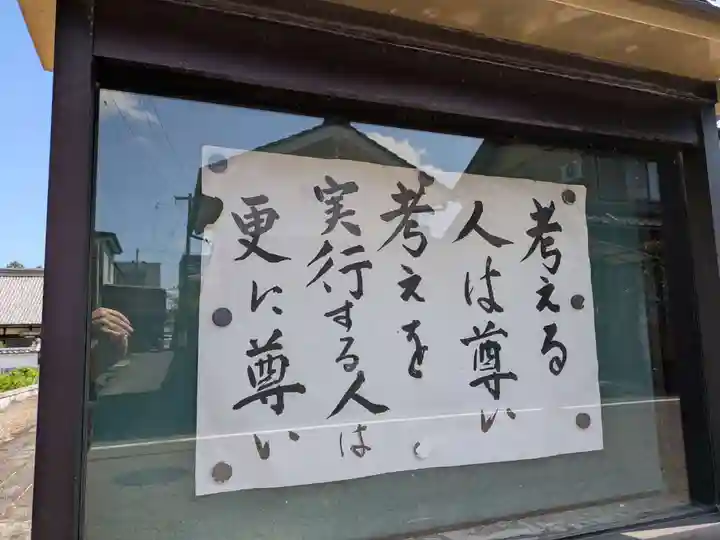 考える
人は尊い
考えを
実行する人は
更に尊い